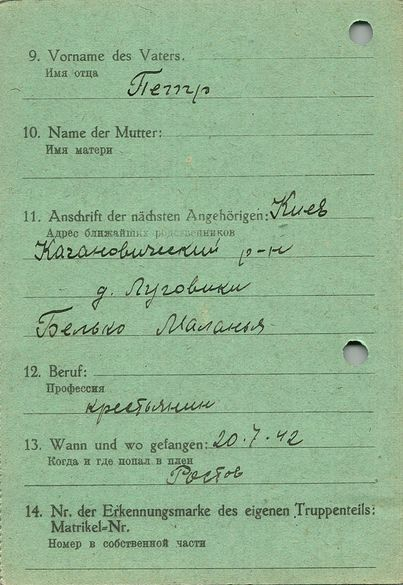 9. Vorname des Vaters.
Имя отца
Петр
10. Name der Mutter:
Имя матери
11. Anschrift der nächsten Angehörigen: Киев
Адрес ближайших родственников
Кагановический р-н
д. Луговики
Белько Маланья
12. Beruf:
Профессия
крестьянин
13. Wann und wo gefangen: 20.7.42
Когда и где попал в плен
Ростов
14. Nr. der Erkennungsmarke des eigenen Truppenteils:
Matrikel-Nr.
Номер в собственной части